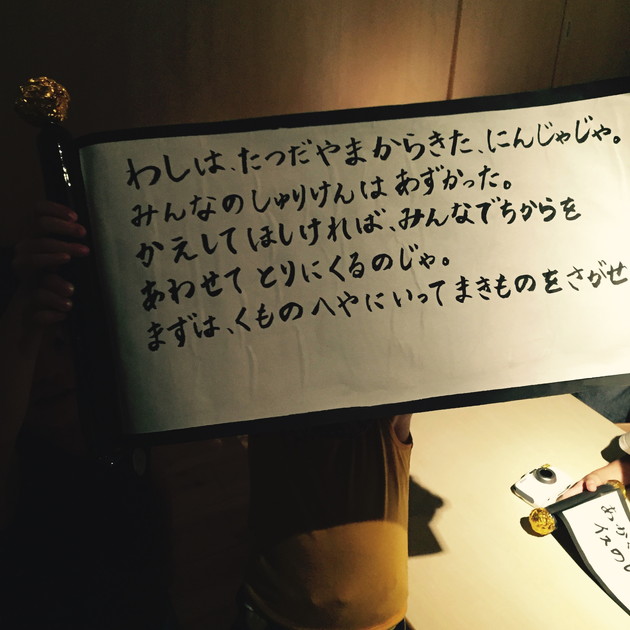 わしは、たつだやまからきた、にんじゃじゃ。
みんなのしゅりけんはあずかった。
かえしてほしければ、みんなでちからを
あわせてとりにくるのじゃ。
まずは、くものへやにいってまきものをさがせ
イスの